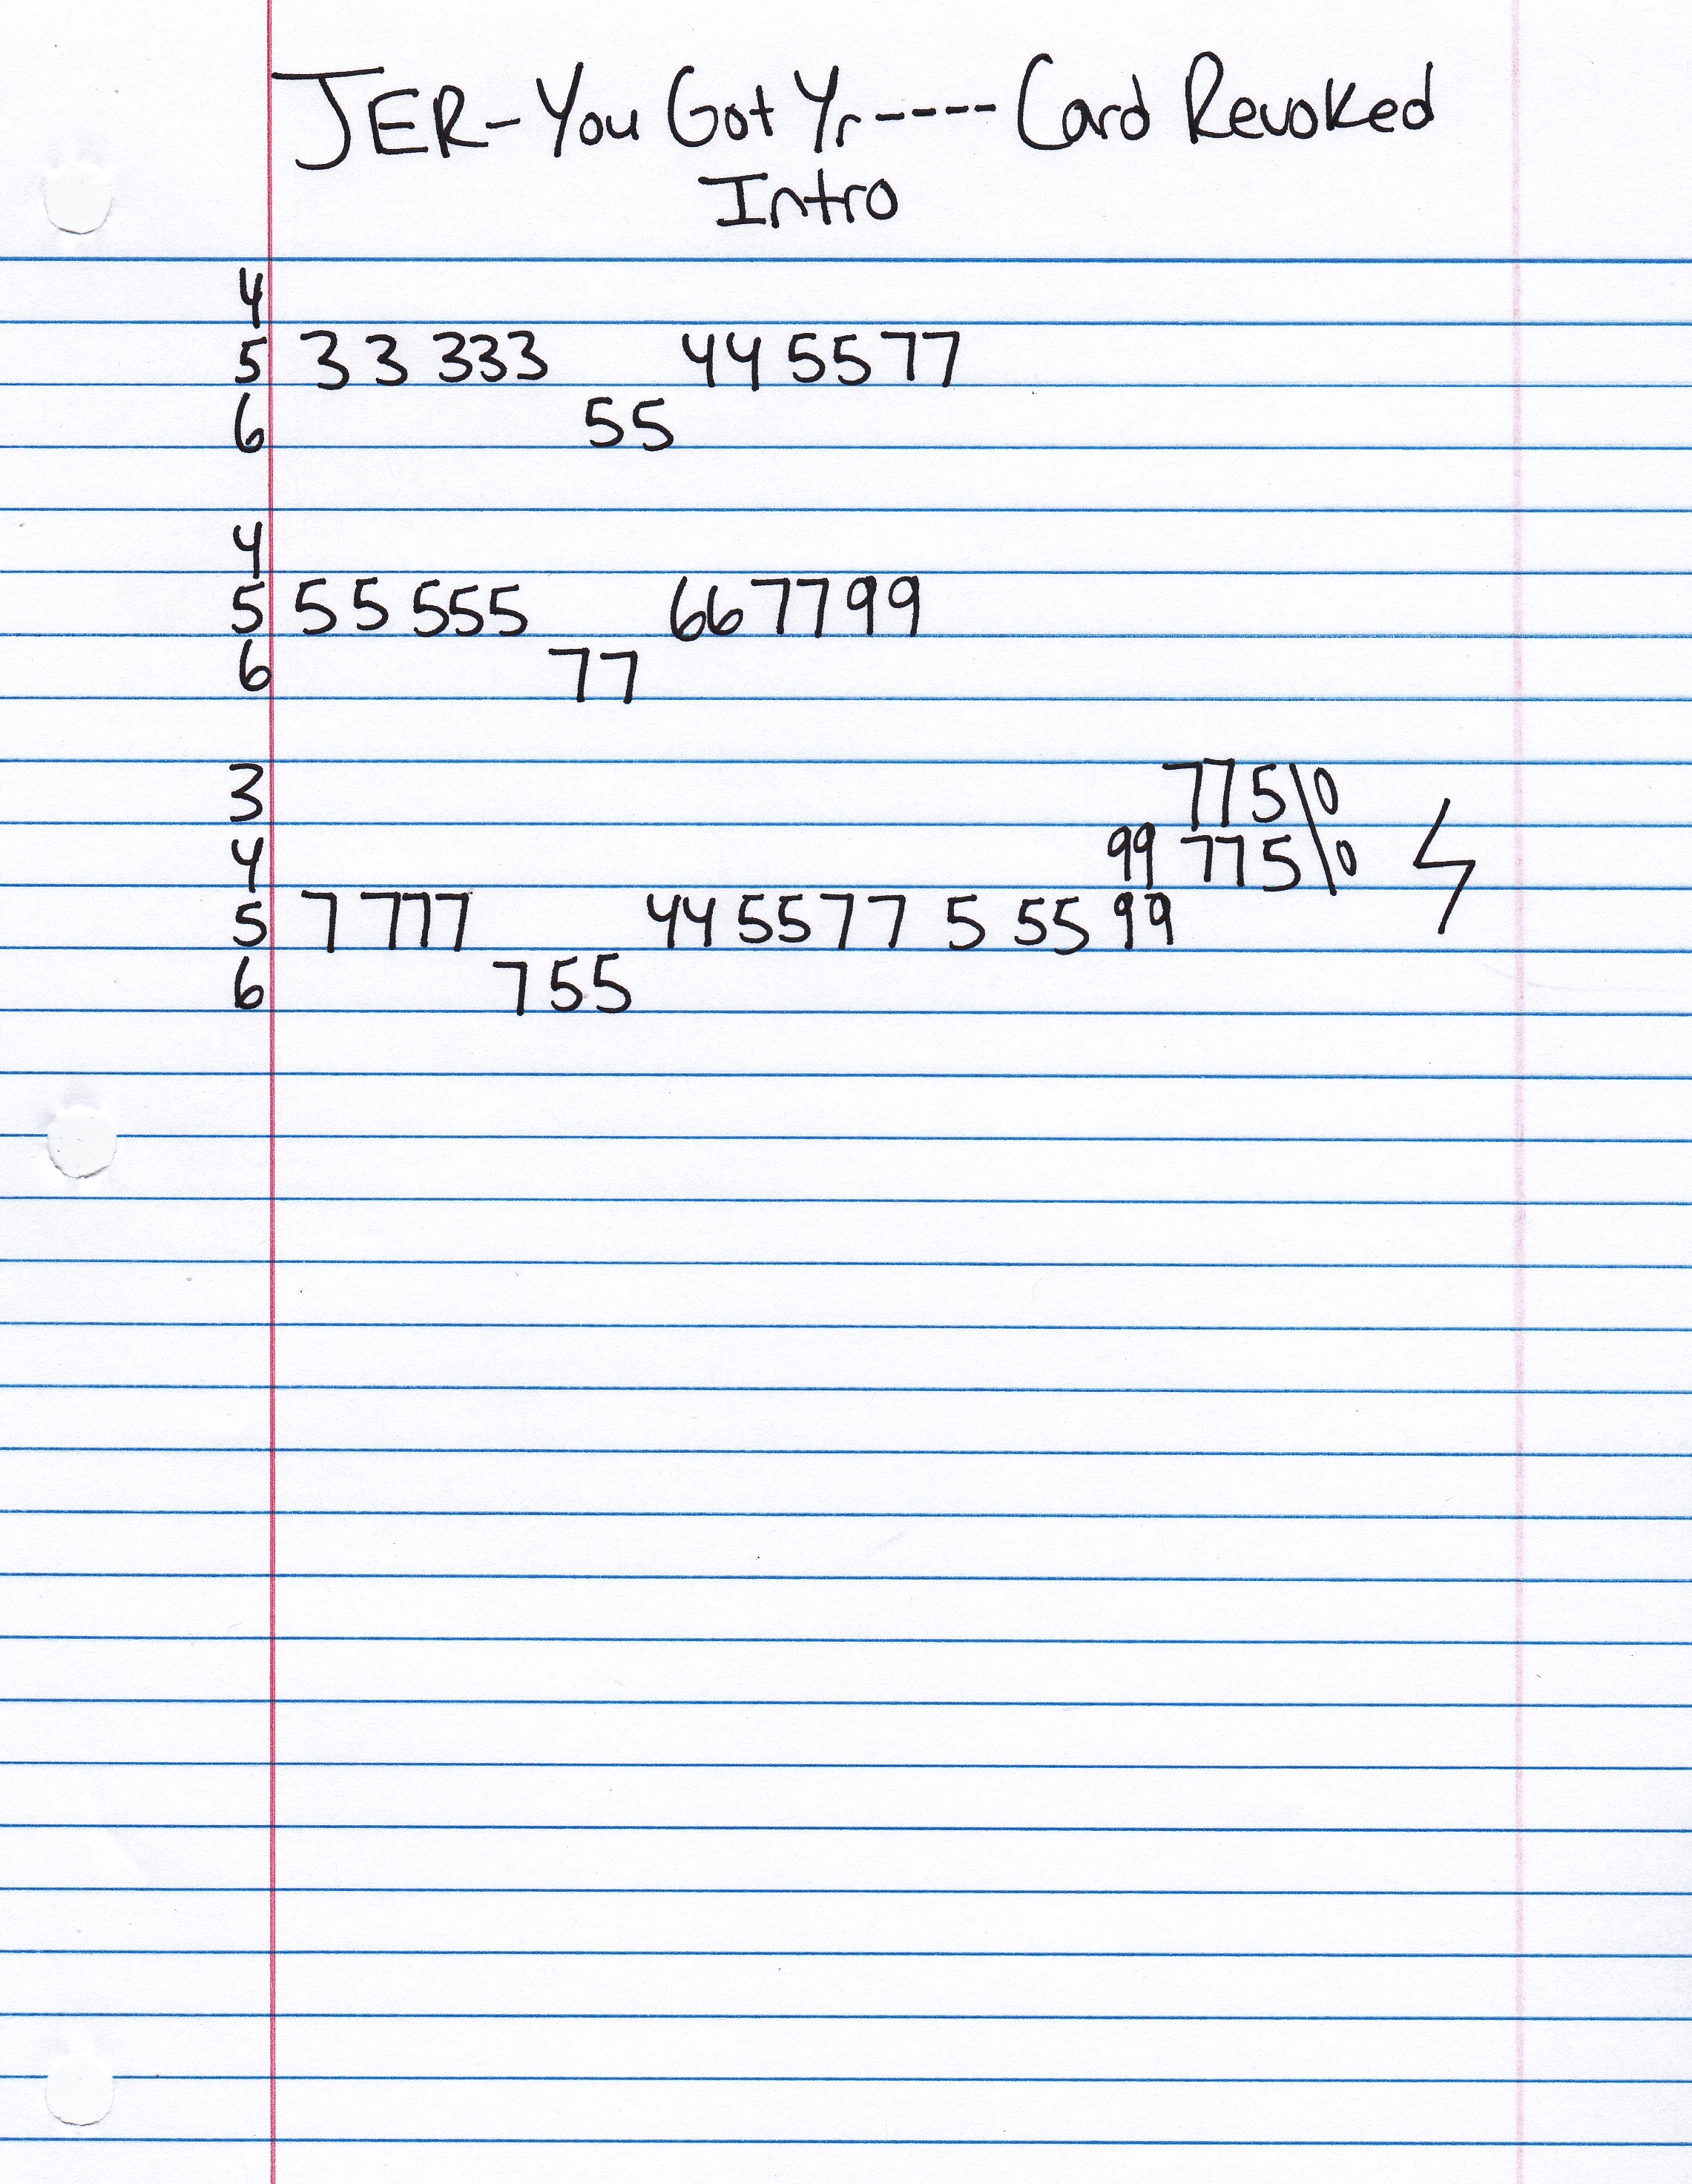 JER - You Got Yr ----- Card Revoked
Intro
4
5 3 3 333 44 55 77
6 55
4
5 5 5 555 66 77 99
6 77
3 775\0
4 99 775\0
5 7 777 44 55 77 5 55 99
6 7 55